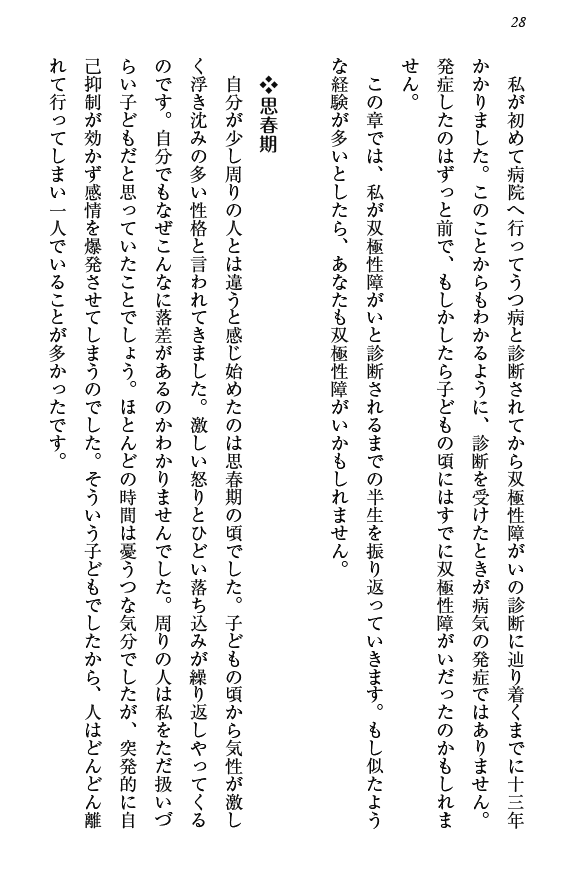 28
私が初めて病院へ行ってうつ病と診断されてから双極性障がいの診断に辿り着くまでに十三年
かかりました。このことからもわかるように、診断を受けたときが病気の発症ではありません。
発症したのはずっと前で、もしかしたら子どもの頃にはすでに双極性障がいだったのかもしれま
せん。
この章では、私が双極性障がいと診断されるまでの半生を振り返っていきます。もし似たよう
な経験が多いとしたら、あなたも双極性障がいかもしれません。
❖思春期
自分が少し周りの人とは違うと感じ始めたのは思春期の頃でした。子どもの頃から気性が激し
く浮き沈みの多い性格と言われてきました。激しい怒りとひどい落ち込みが繰り返しやってくる
のです。自分でもなぜこんなに落差があるのかわかりませんでした。周りの人は私をただ扱いづ
らい子どもだと思っていたことでしょう。ほとんどの時間は憂うつな気分でしたが、突発的に自
己抑制が効かず感情を爆発させてしまうのでした。そういう子どもでしたから、人はどんどん離
れて行ってしまい一人でいることが多かったです。